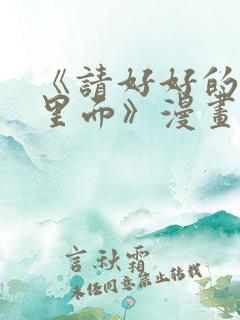 《請好好的
里面》漫畫
言秋霜
未经同意禁止转载